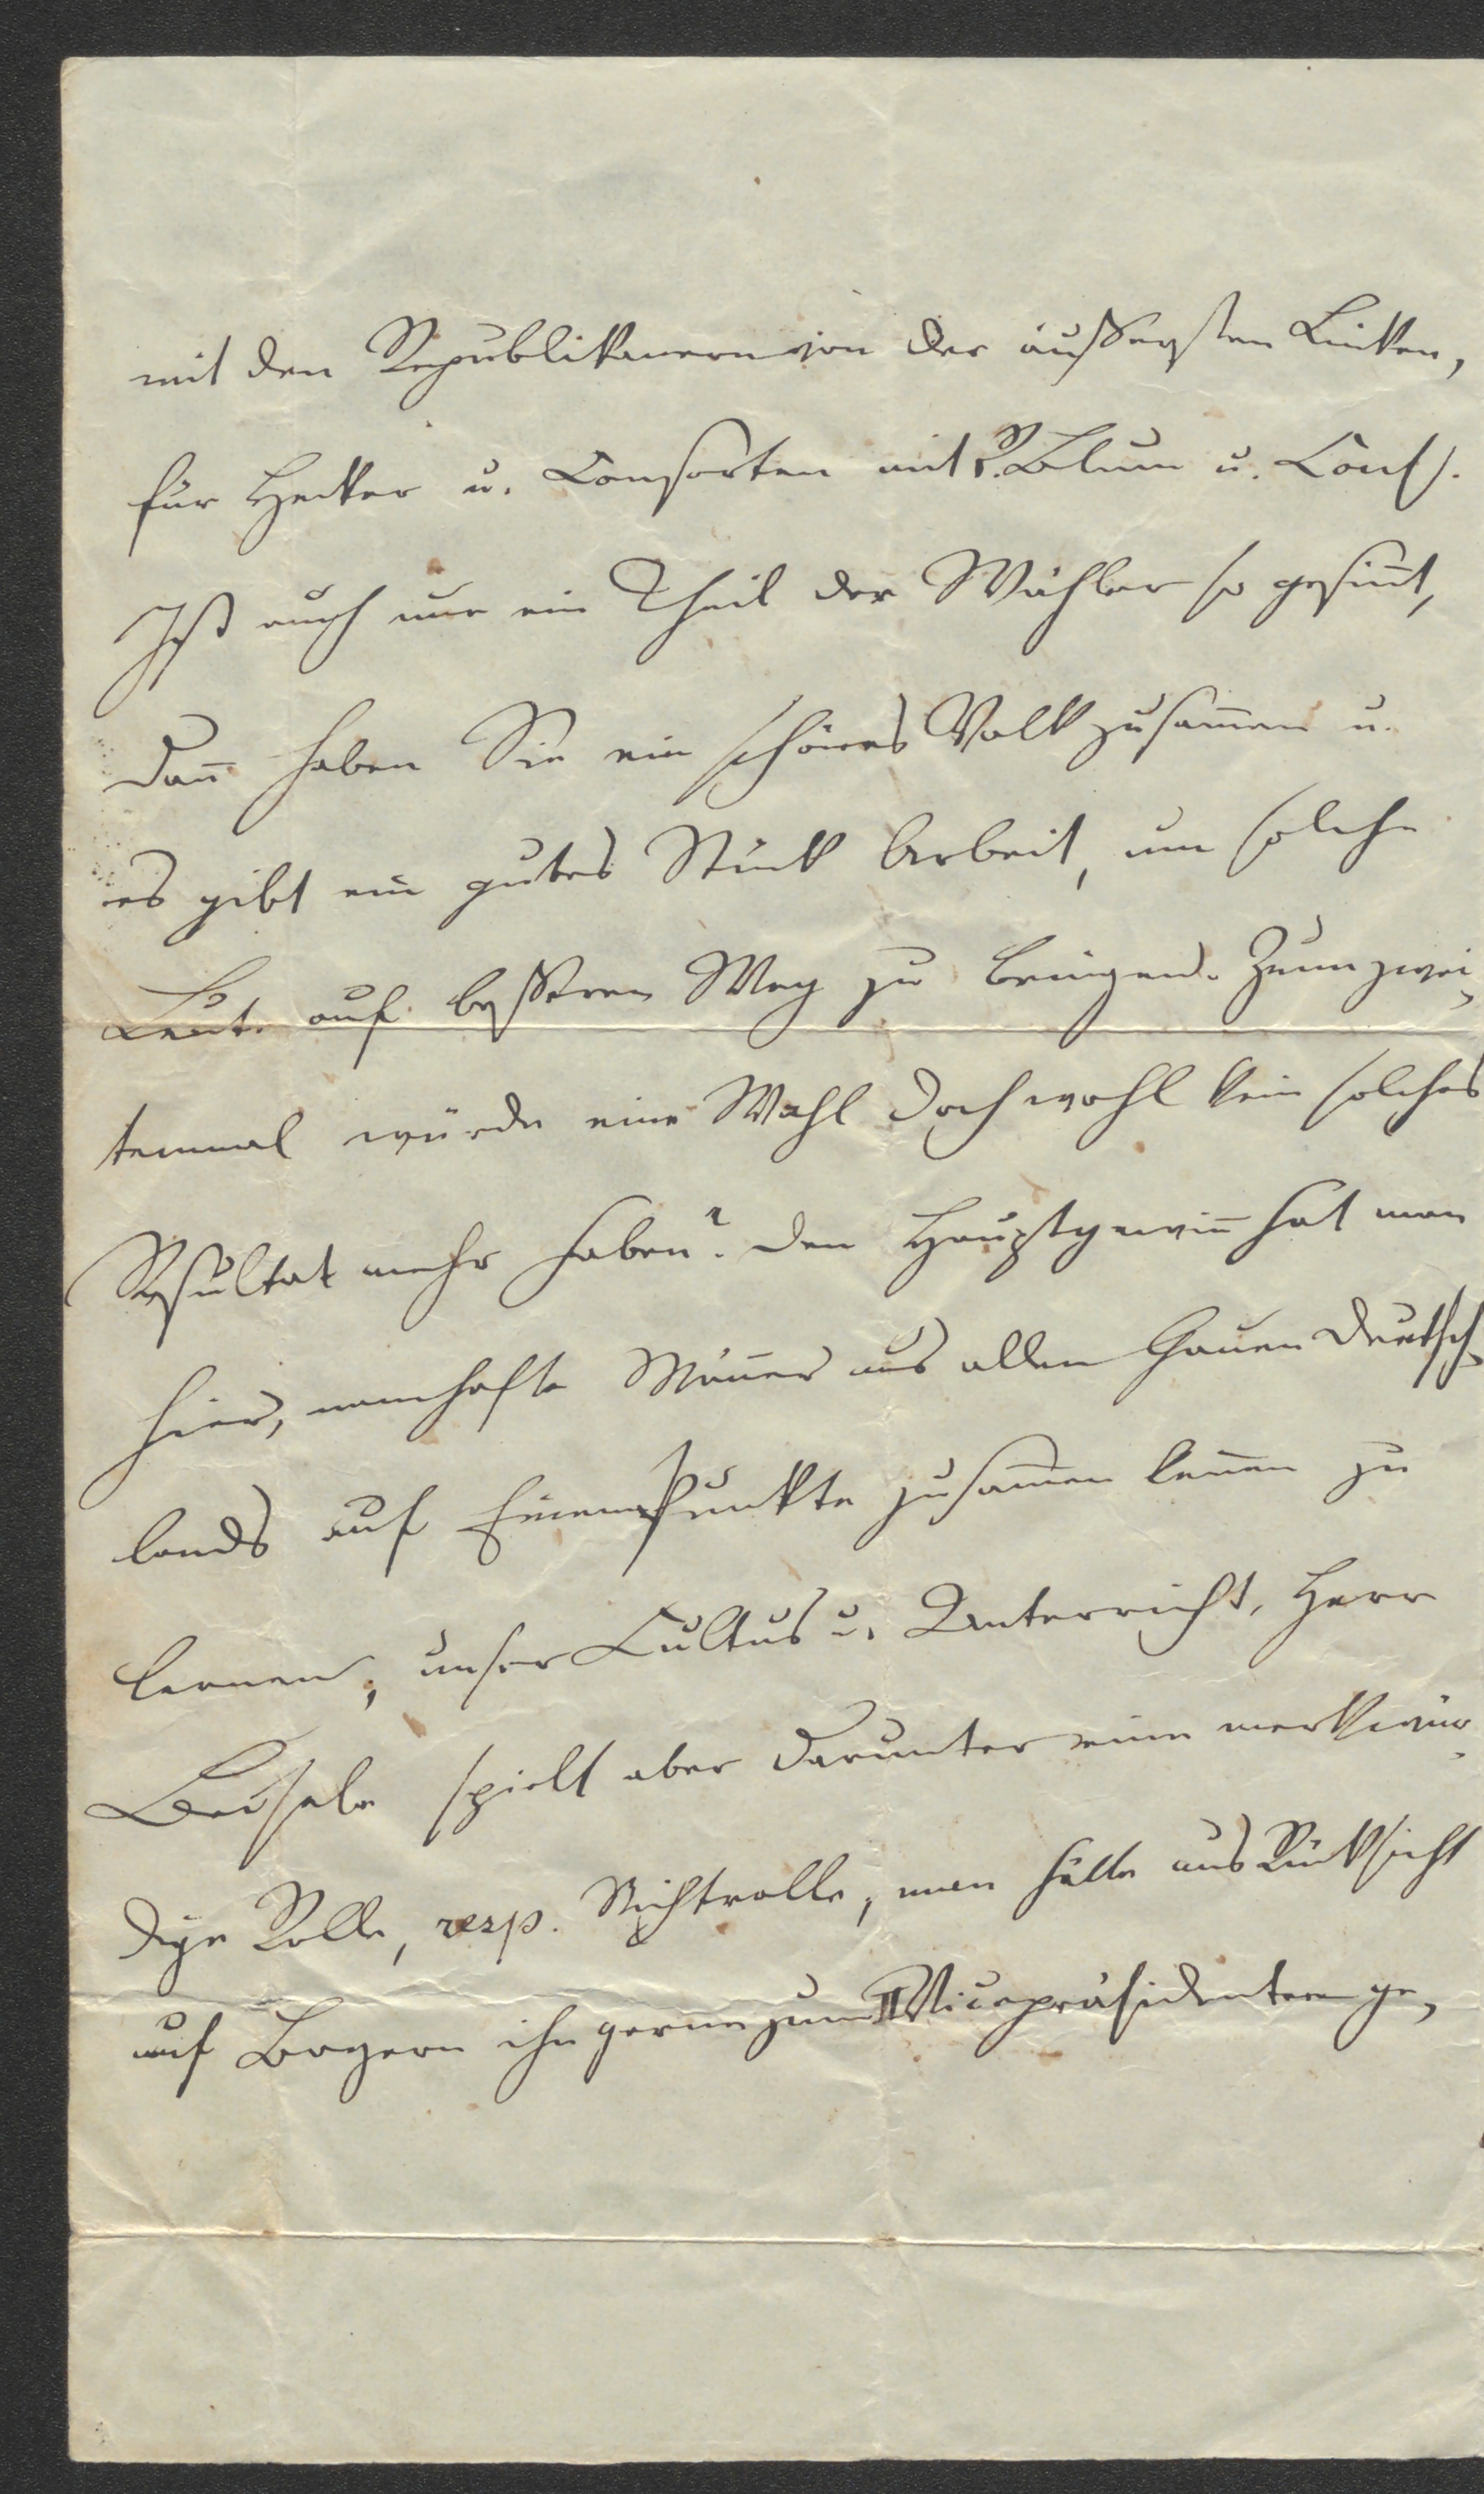 mit den Republikanern von der äußersten Linken,
für Hecker u. Consorten mit R. Blum u. Cons.
Ist auch nur ein Theil der Wähler so gesiñt,
dañ haben Sie ein schönes Volk zusam̄en u.
es gibt ein gutes Stück Arbeit, um solche
Leute auf besseren Weg zu bringen. Zum zwei-
tenmal würde eine Wahl doch wohl kein solches
Resultat mehr haben? Den Hauptgewiñ hat man
hier, namhafte Mäñer aus allen Gauen Deutsch-
lands auf Einem Punkte zusam̄en keñen zu
lernen; unser Cultus u. Unterricht, Herr
Beisele spielt aber darunter eine merkwür-
dige Rolle, resp. Nichtrolle, man hätte aus Rücksicht
auf Bayern ihn gerne zum II Vicepräsidenten ge-